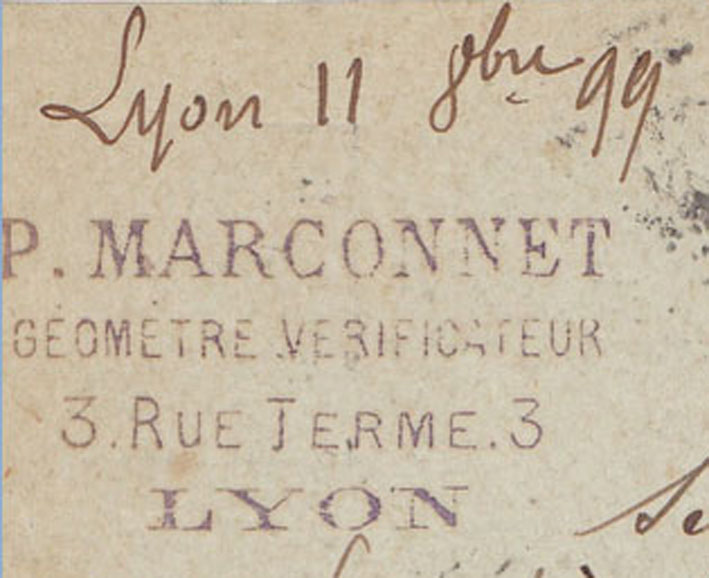 Lyon 11 8bre 99
P. MARCONNET
GÉOMÈTRE VÉRIFICATEUR
3. RUE TERME. 3
LYON